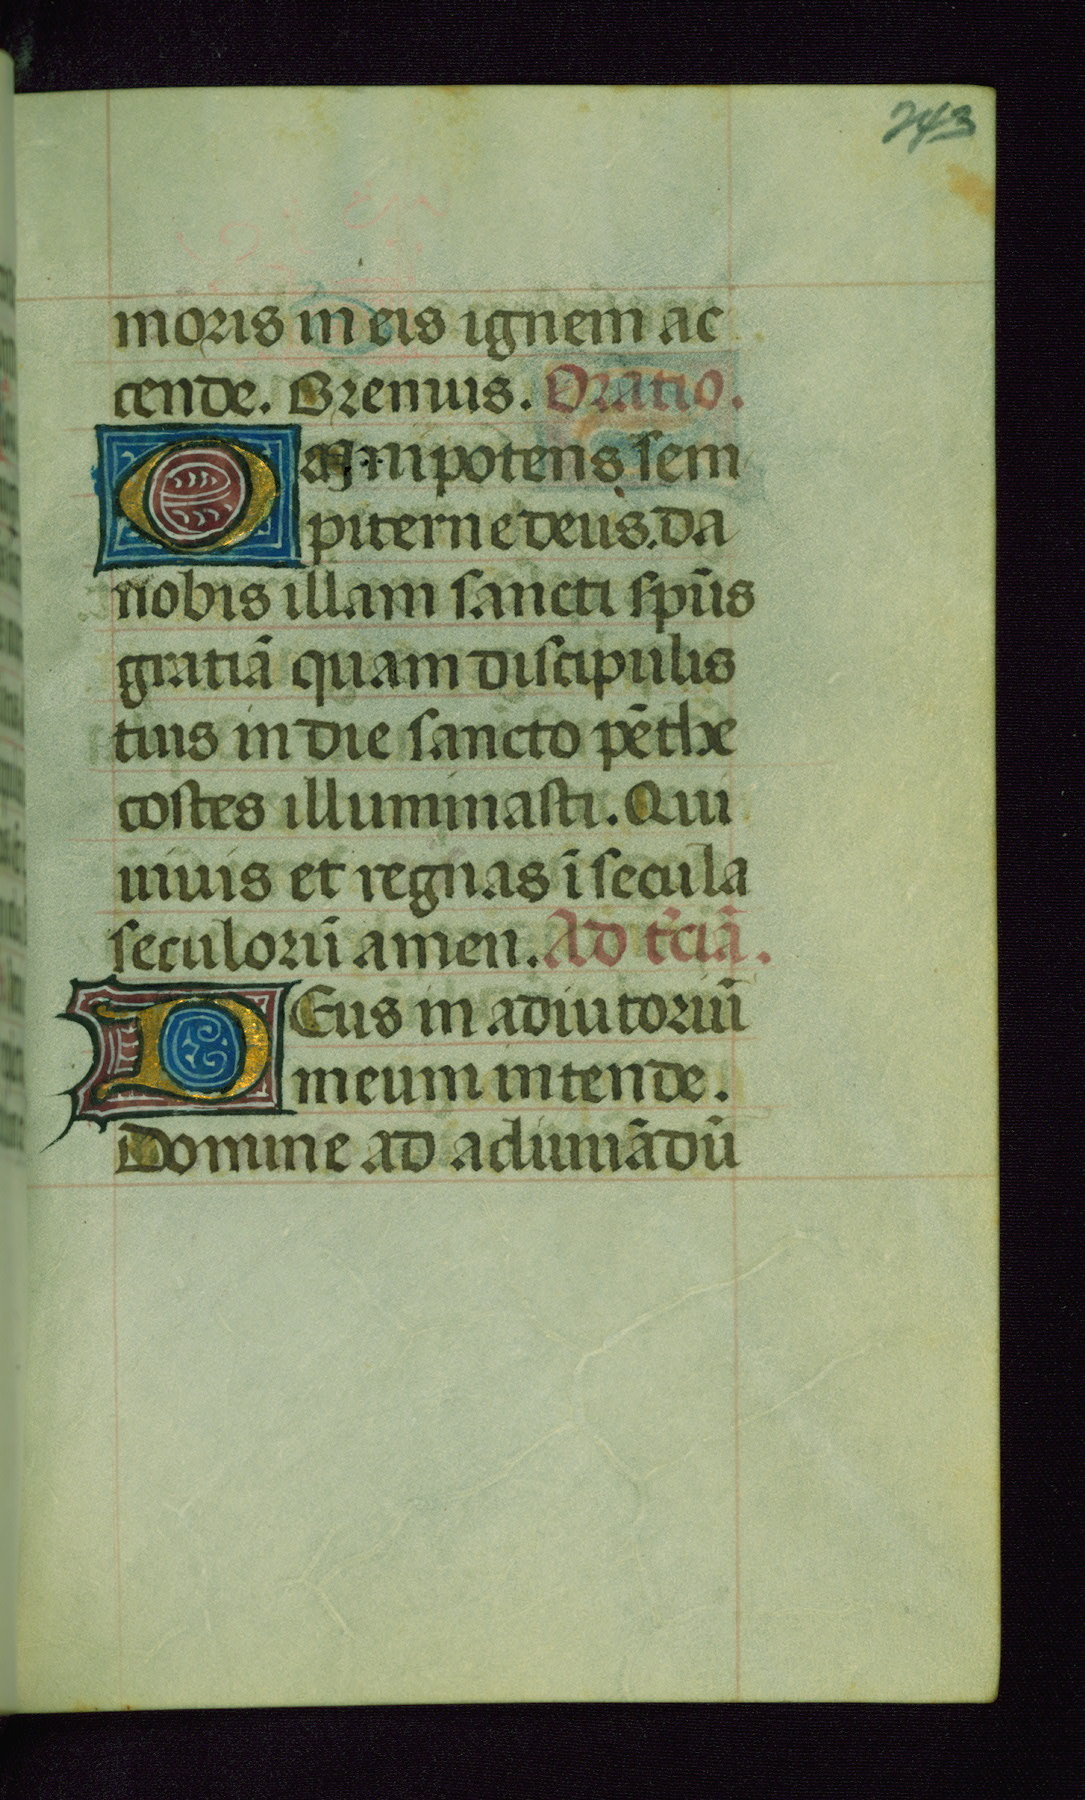 243
moris in eis ignem ac
cende. Bremus. Oratio.
Omnipotens sem
piterne deus. da
nobis illam sancti spūs
gratiā quam discipulis
tuis in die sancto pēthe
costes illuminasti. Qui
uiuis et regnas ī secula
seculorū amen. Ad t̄ciā.
DEus in adiutoriū
meum intende.
Domine ad adiuuādū